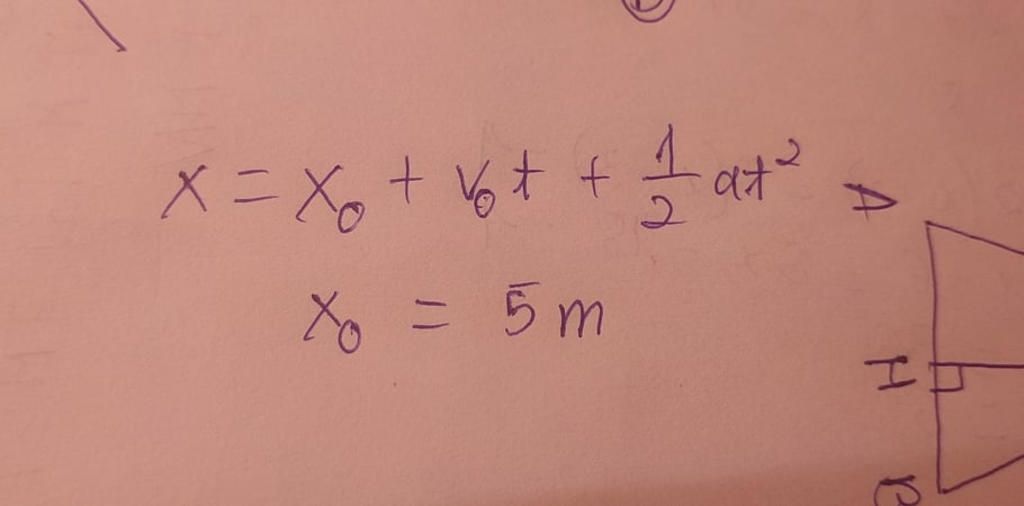 x = x₀ + v₀t + 1/2 at²
x₀ = 5 m
A
H
B